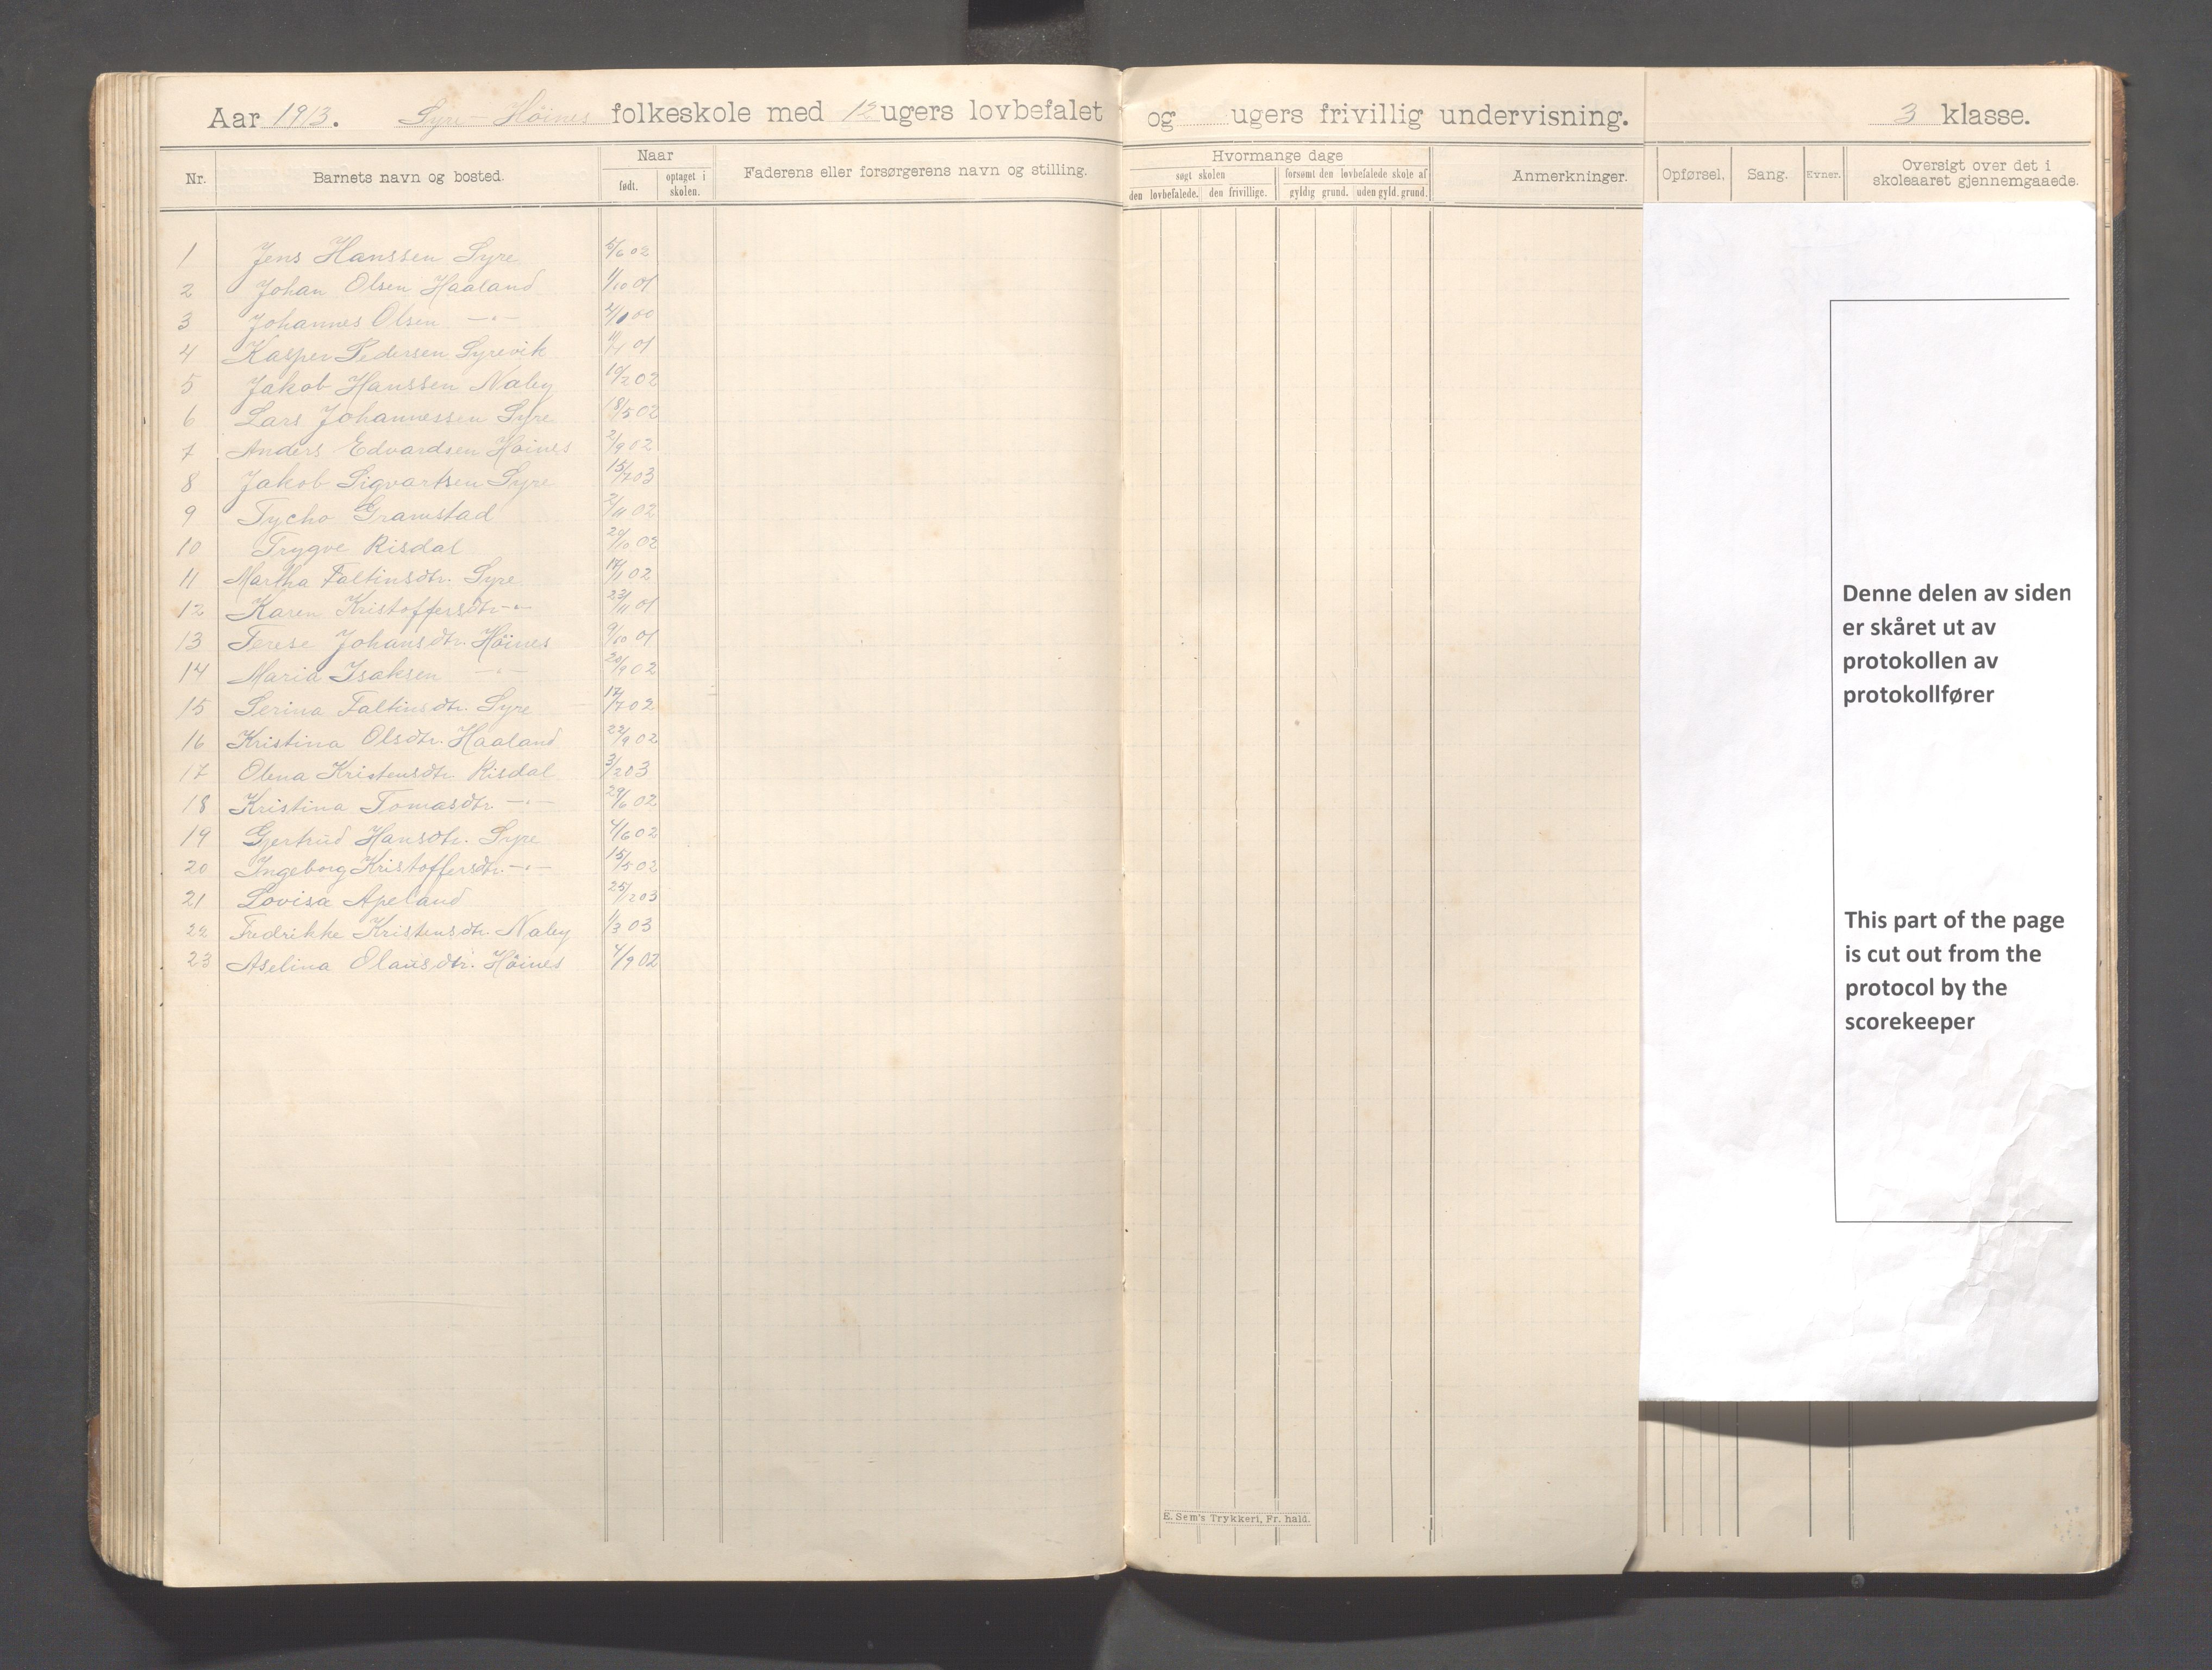 Aar 1913. Syre - Höines folkeskole med 12 ugers lovbefalet og ugers frivillig undervisning. 3 klasse.
Nr. Barnets navn og bosted. Naar født. optaget i skolen. Faderens eller forsørgerens navn og stilling. Hvormange dage søgt skolen den lovbefalede. den frivillige. forsømt den lovbefalede skole af gyldig grund. uden gyld. grund. Anmerkninger. Opførsel. Sang. Evner. Oversigt over det i skoleaaret gjennemgaaede.
1 Jens Hanssen Syre 5/6 02
2 Johan Olsen Haaland 1/10 01
3 Johannes Olsen -"-
4 Kasper Pedersen Syrevik
5 Jakob Hanssen Naley 19/2 02
6 Lars Johannessen Syre 18/5 02
7 Anders Edvardsen Höines 2/9 02
8 Jakob Sigvartsen Syre 15/7 03
9 Tycho Gramstad 2/11 02
10 Trygve Risdal 20/10 02
11 Martha Faltinsdtr. Syre 17/11 02
12 Karen Kristoffersdtr -"- 23/11 01
13 Terese Johansdtr. Höines 9/10 01
14 Maria Isaksen -"- 20/9 02
15 Serina Faltinsdtr. Syre 17/7 02
16 Kristina Olsdtr. Haaland 22/9 02
17 Olena Kristensdtr. Risdal 3/2 03
18 Kristina Tomasdtr -"- 29/6 02
19 Gjertrud Hansdtr. Syre 4/6 02
20 Ingeborg Kristoffersdtr. -"- 15/5 02
21 Lovisa Apeland 25/2 03
22 Fredrikke Kristensdtr. Naley 1/3 03
23 Aselina Olausdtr. Höines 4/9 02
E. Sem's Trykkeri, Fr. hald.
Denne delen av siden
er skåret ut av
protokollen av
protokollfører
This part of the page
is cut out from the
protocol by the
scorekeeper